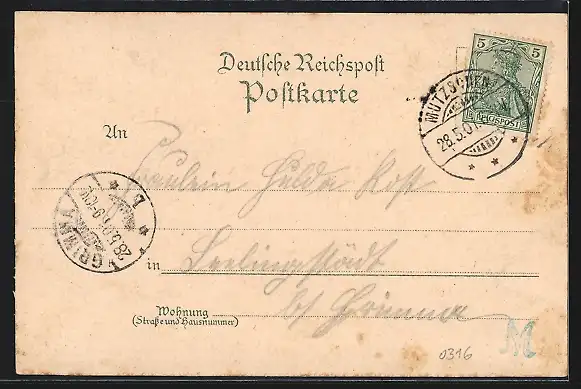 Deutsche Reichspost
Postkarte
5 5
REICHSPOST
MUTZSCHEN
28.5.01.
An
Fräulein Hulda Rost
GRIMMA
28.5.01
in
b/ Grimma
Wohnung
(Straße und Hausnummer)
M
0316